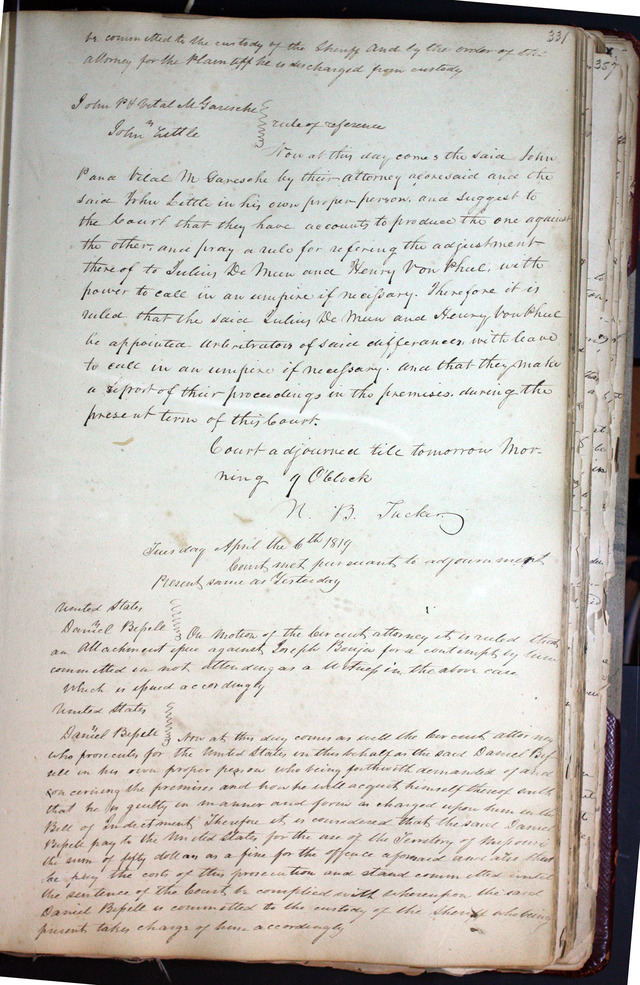 331
be committed to the custody of the Sheriff and by the order of the
attorney for the Plaintiff he is discharged from custody
John P & Vital M Garesche
vs
John Little
rule of reference
Now at this day comes the said John
P and Vital M Garesche by their attorney aforesaid and the
said John Little in his own proper person, and suggest to
the Court that they have accounts to produce the one against
the other, and pray a rule for refering the adjustment
thereof to Julius De Mun and Henry Von Phul, with
power to call in an umpire if necessary. Therefore it is
ruled that the said Julius De Mun and Henry Von Phul
be appointed Arbitrators of said differances with leave
to call in an umpire if necessary. And that they make
a report of their proceedings in the premises, during the
present term of this Court.
Court adjourned till tomorrow Mor-
ning 9 O'Clock
N. B. Tucker
Tuesday April the 6th 1819
Court met pursuant to adjournment
Present same as Yesterday
United States
vs
Daniel Bissell
On Motion of the Circuit attorney it is ruled that
an Attachment issue against Joseph for a contempt by him
committed in not attending as a Witness in the above case
Which is issued accordingly
United States
vs
Daniel Bissell
Now at this day comes as well the Circuit attorney
who prosecutes for the United States in this behalf as the said Daniel Bis
sell in his own proper person who being forthwith demanded of and
concerning the premises and how he will acquit himself thereof saith
that he is guilty in manner and form as charged upon him in the
Bill of Indictment Therefore it is considered that the said Daniel
Bissell pay to the United States for the use of the Territory of Missouri
the sum of fifty dollars as a fine for the offence aforesaid and also that
he pay the costs of this prosecution and stand committed until
the sentence of the Court be complied with whereupon the said
Daniel Bissell is committed to the custody of the Sheriff who being
present takes charge of him accordingly
357